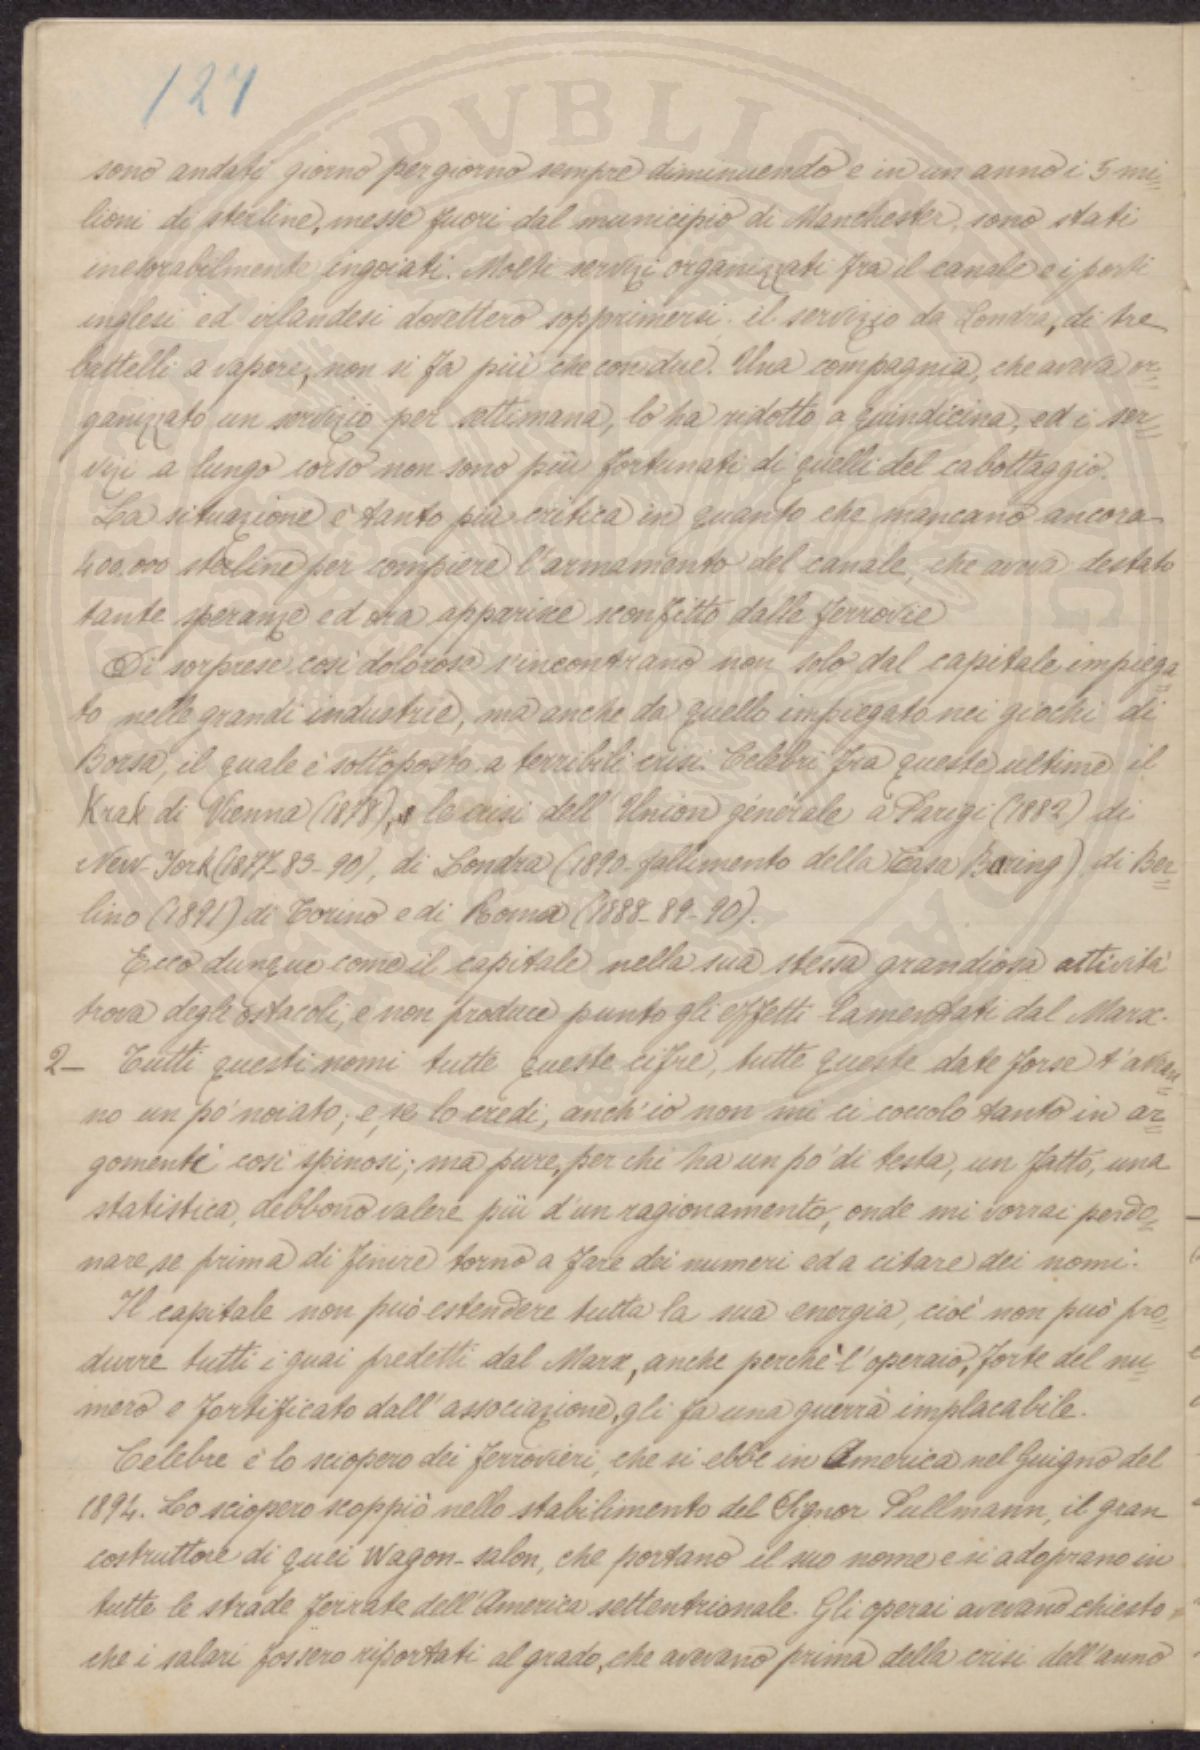 127
sono andati giorno per giorno sempre diminuendo e in un anno i 5 mi=
lioni di sterline, messe fuori dal municipio di Manchester, sono stati
inesorabilmente ingoiati. Molti servizi organizzati fra il canale e i porti
inglesi ed irlandesi dovettero sopprimersi: il servizio da Londra, di tre
battelli a vapore, non si fa più che con due. Una compagnia, che aveva or=
ganizzato un servizio per settimana, lo ha ridotto a quindicina, ed i ser=
vizi a lungo corso non sono più fortunati di quelli del cabottaggio.
La situazione è tanto più critica in quanto che mancano ancora
400.000 sterline per compiere l'armamento del canale, che aveva destato
tante speranze ed ora apparisce sconfitto dalle ferrovie
Di sorprese così dolorose s'incontrano non solo dal capitale impiega=
to nelle grandi industrie, ma anche da quello impiegato nei giochi di
Borsa, il quale è sottoposto a terribili crisi. Celebri fra queste ultime il
Krak di Vienna (1878), le crisi dell'Union générale a Parigi (1882) di
New-York (1877-83-90), di Londra (1890-fallimento della Casa Baring) di Ber=
lino (1891) di Torino e di Roma (1888-89-90).
Ecco dunque come il capitale nella sua stessa grandiosa attività
trova degli ostacoli, e non produce punto gli effetti lamentati dal Marx.
2- Tutti questi nomi tutte queste cifre, tutte queste date forse t'avran=
no un po' noiato; e, se lo credi, anch'io non mi ci coccolo tanto in ar=
gomenti così spinosi; ma pure, per chi ha un po' di testa, un fatto, una
statistica, debbono valere più d'un ragionamento, onde mi vorrai perdo=
nare, se prima di finire torno a fare dei numeri ed a citare dei nomi.
Il capitale non può estendere tutta la sua energia, cioè non può pro=
durre tutti i guai predetti dal Marx, anche perchè l'operaio, forte del nu=
mero e fortificato dall'associazione, gli fa una guerra implacabile.
Celebre è lo sciopero dei ferrovieri, che si ebbe in America nel Giugno del
1894. Lo sciopero scoppiò nello stabilimento del Signor Pullmann, il gran
costruttore di quei Wagon-salon, che portano il suo nome e si adoprano in
tutte le strade ferrate dell'America settentrionale. Gli operai avevano chiesto
che i salari fossero riportati al grado, che avevano prima della crisi dell'anno